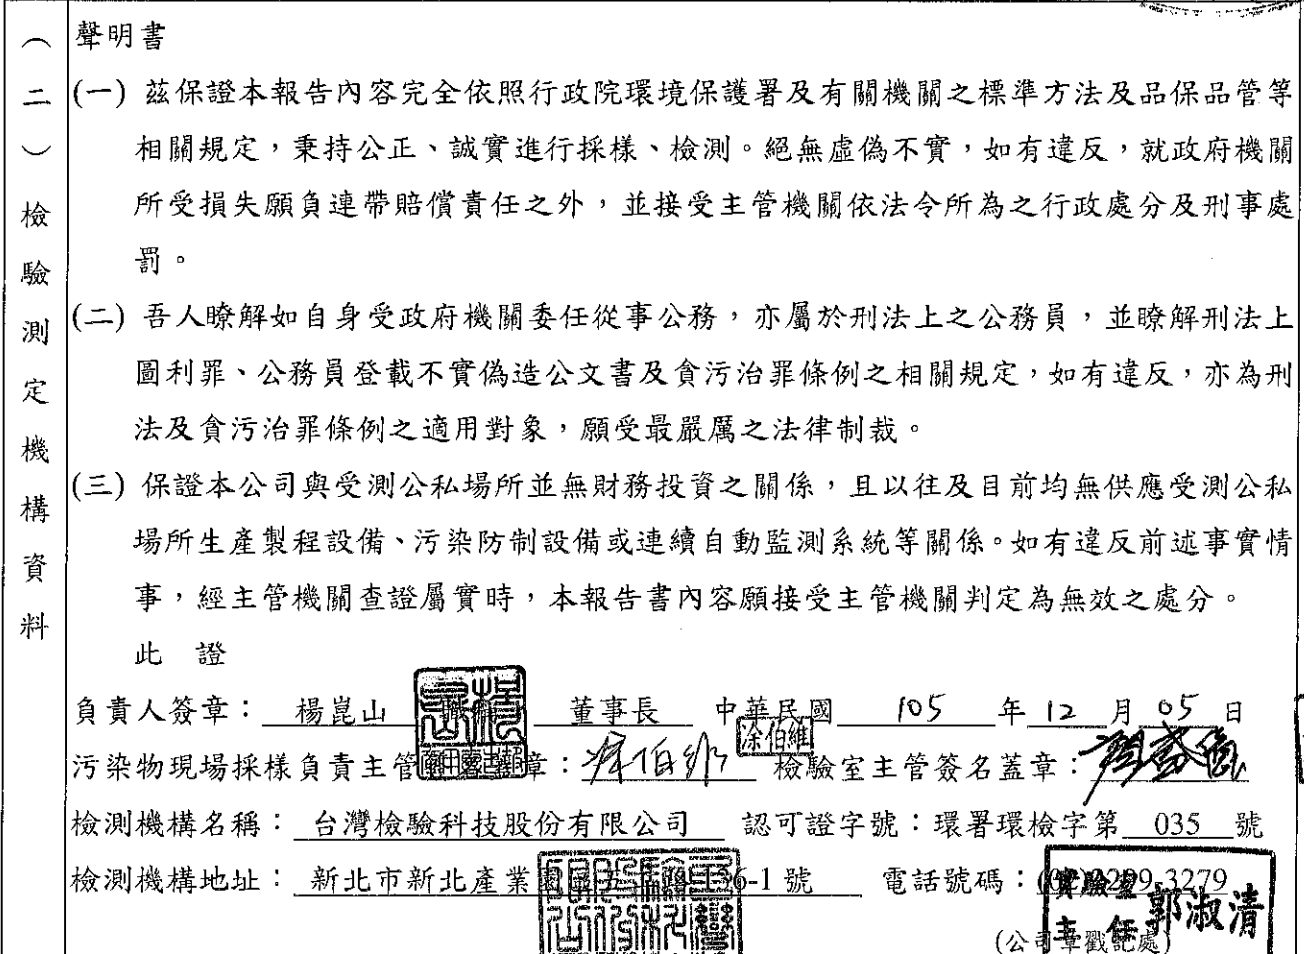 (二)檢驗測定機構資料
聲明書
(一) 茲保證本報告內容完全依照行政院環境保護署及有關機關之標準方法及品保品管等
相關規定，秉持公正、誠實進行採樣、檢測。絕無虛偽不實，如有違反，就政府機關
所受損失願負連帶賠償責任之外，並接受主管機關依法令所為之行政處分及刑事處
罰。
(二) 吾人瞭解如自身受政府機關委任從事公務，亦屬於刑法上之公務員，並瞭解刑法上
圖利罪、公務員登載不實偽造公文書及貪污治罪條例之相關規定，如有違反，亦為刑
法及貪污治罪條例之適用對象，願受最嚴厲之法律制裁。
(三) 保證本公司與受測公私場所並無財務投資之關係，且以往及目前均無供應受測公私
場所生產製程設備、污染防制設備或連續自動監測系統等關係。如有違反前述事實情
事，經主管機關查證屬實時，本報告書內容願接受主管機關判定為無效之處分。
此 證
負責人簽章：楊崑山 職稱 董事長 中華民國 105 年 12 月 05 日
涂伯維
污染物現場採樣負責主管簽名蓋章：涂伯維 檢驗室主管簽名蓋章：
檢測機構名稱：台灣檢驗科技股份有限公司 認可證字號：環署環檢字第 035 號
檢測機構地址：新北市新北產業 路 -1 號 電話號碼： 3279
實驗室
主 任 郭淑清
(公司章戳記處)